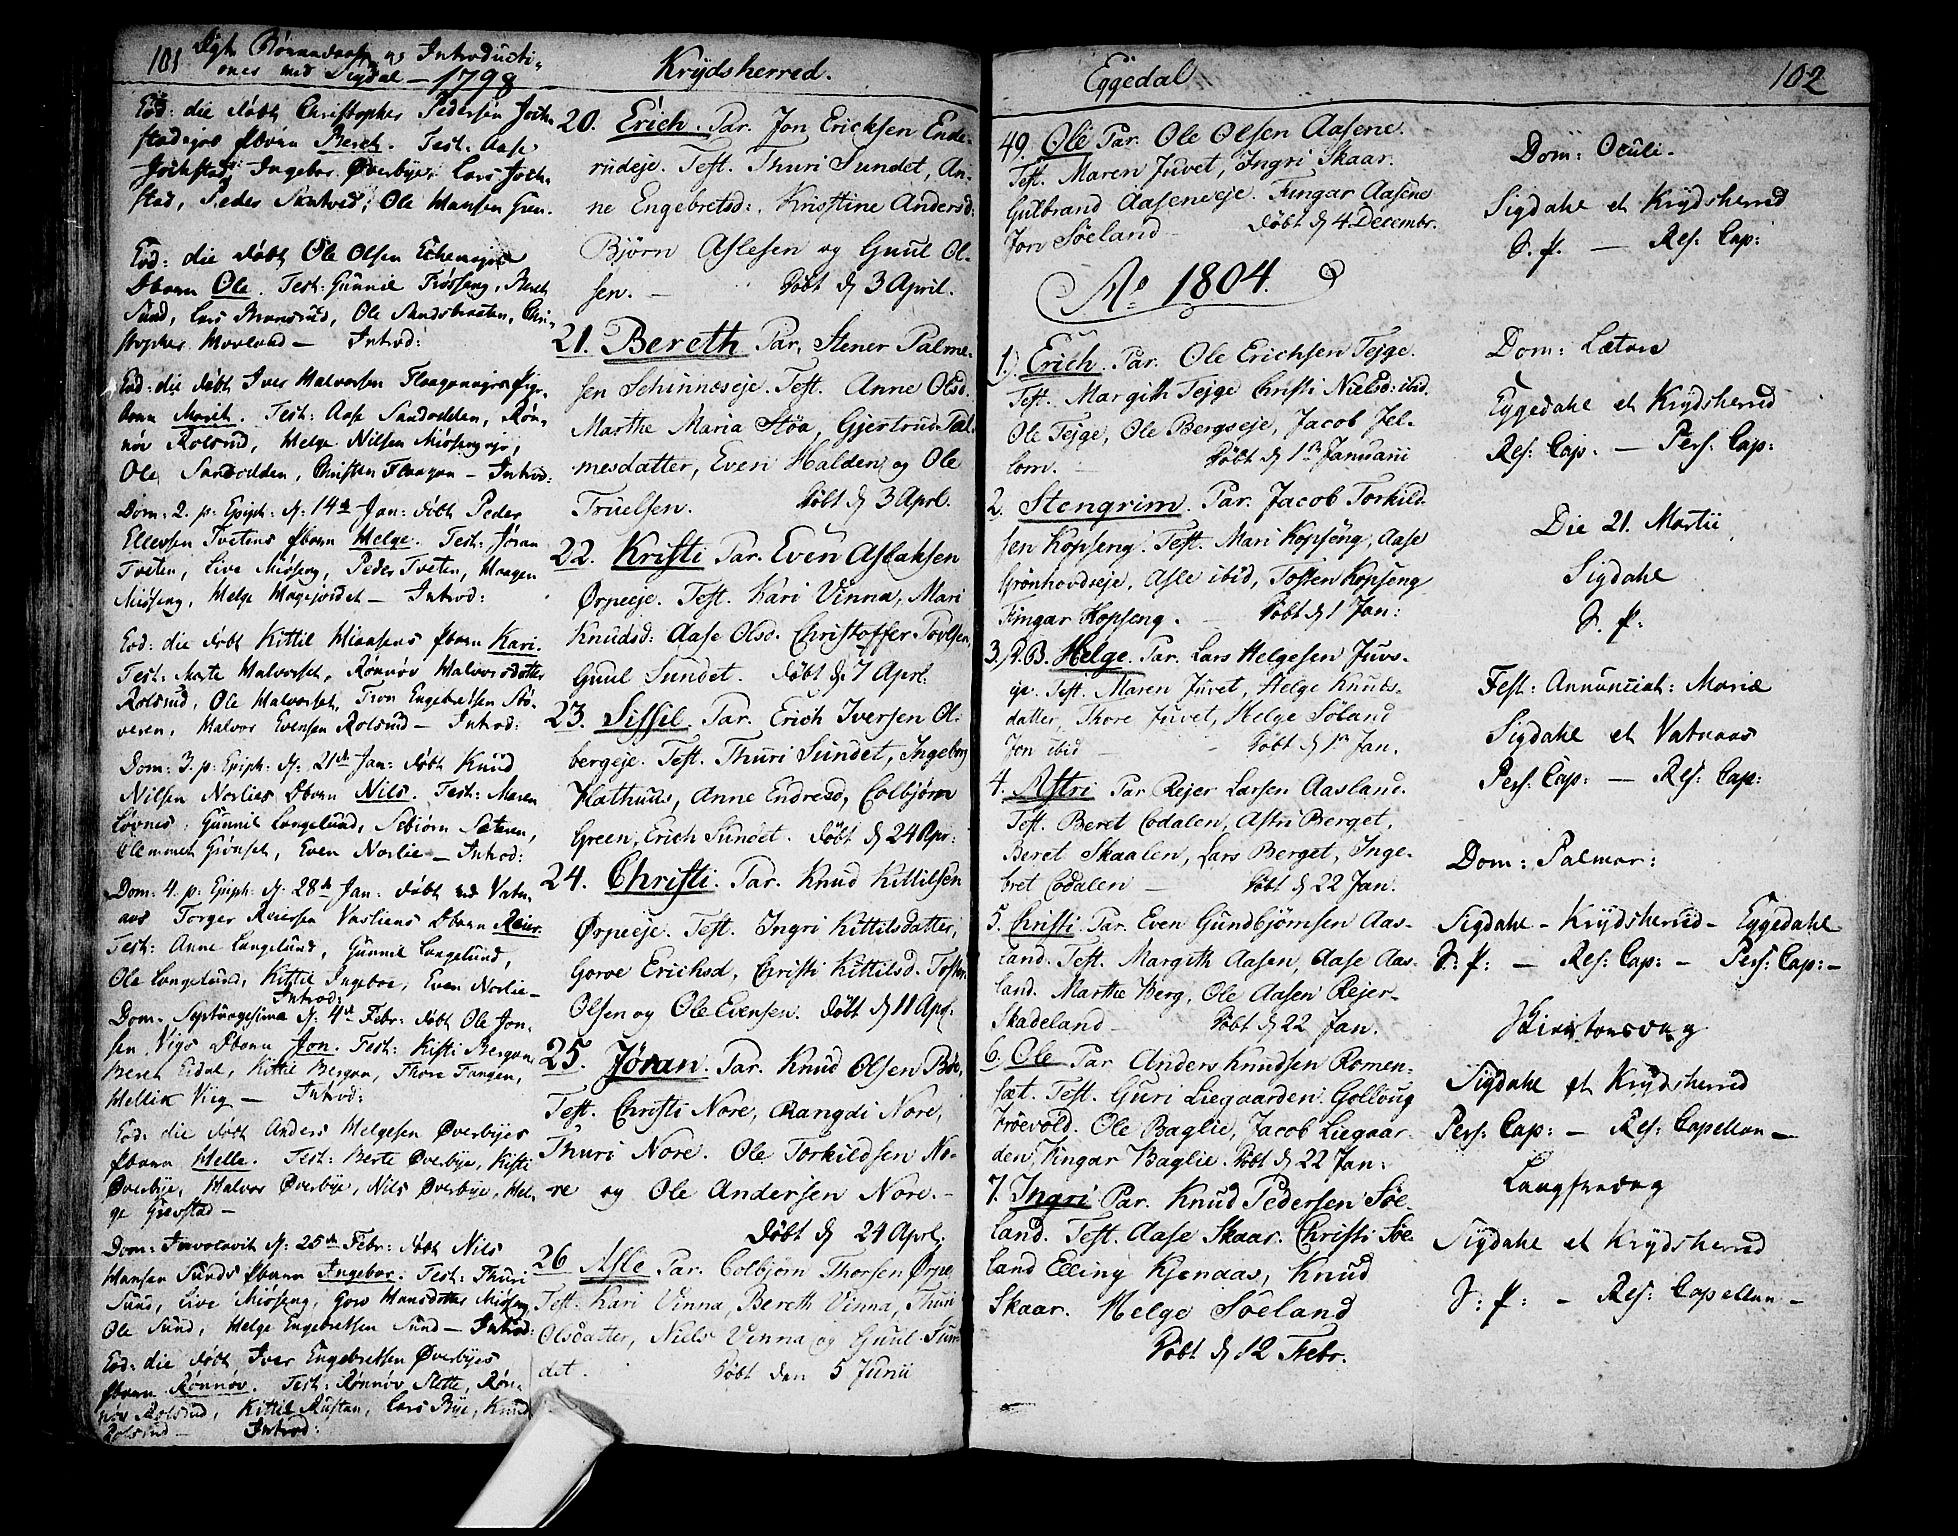 101
Dgl. Børnedaab og Introducti-
ones ved Sigdal — 1798
Eod: die døbt Christopher Pedersen Joch-
stadejes Øbarn Bereth. Test: Aase
Jochstad, Ingebor Øverbye, Lars Joch-
stad, Peder Skatved, Ole Hansen Grøn.
Eod: die døbt Ole Olsen Echernejes
Øbarn Ole. Test: Gunnil Frøseng, Bereth
Sund, Lars Monsrud, Ole Sandsbraaten, Chri-
stopher Hovland — Introd:
Eod: die døbt Iver Halvorsen Flaaganejes Pige-
barn Mareth. Test: Aase Sandodden, Røn-
nov Rolsrud, Helge Nilsen Miøsengeje,
Ole Sandodden, Christen Flaagan — Introd:
Dom: 2. p: Epiph: d: 14de Jan: døbt Peder
Ellevsen Tvetens Øbarn Helge. Test: Jøran
Tveten, Live Miøseng, Peder Tveten, Haagen
Miøseng, Helge Hagejordet — Introd:
Eod: die døbt Kittil Miaasens Øbarn Kari.
Test: Marte Halvorset, Rønnov Halvorsdatter
Rolsrud, Ole Halvorset, Tron Engebretsen Sø-
veren, Halvor Evensen Rolsrud — Introd:
Dom: 3. p: Epiph: d: 21de Jan: døbt Knud
Nilsen Norlies Øbarn Nils. Test: Maren
Løvnes, Gunnil Langelund, Sebiørn Sæteren,
Clemmet Grønset, Even Norlie — Introd:
Dom: 4. p: Epiph: d: 28de Jan: døbt ved Vatn-
aas Torger Reiersen Vasliens Øbarn Reier.
Test: Anne Langelund, Gunnil Langelund,
Ole Langelund, Kittil Ingeboe, Even Norlie —
Introd:
Dom. Septuagesima d: 4de Febr: døbt Ole Jon-
sen Vigs Øbarn Jon. Test: Kisti Bergan,
Beret Eidal, Kittil Bergan, Thore Tangen,
Hellik Viig — Introd:
Eod: die døbt Anders Helgesen Øverbyes
Øbarn Helle. Test: Berte Øverbye, Kisti
Øverbye, Halvor Øverbye, Nils Øverbye, Hel-
ge Grøvstad —
Dom: Invocavit d: 25de Febr: døbt Nils
Hansen Sunds Øbarn Ingebor. Test: Thuri
Sund, Live Miøseng, Goro Hansdatter Miøseng
Ole Sund, Helge Engebretsen Sund — Introd:
Eod: die døbt Iver Engebretsen Øverbyes
Øbarn Rønnov. Test: Rønnov Slette, Røn-
nov Rolsrud, Kittil Rustan, Lars Bye, Knud
Rolsrud — Introd:
Krydsherred.
20. Erich. Par. Jon Ericksen Ende-
rudeje. Test. Thuri Sundet, An-
ne Engebretsd:, Kristine Andersd:
Bjørn Aslesen og Guul Ol-
sen. — Døbt d 3 April.
21. Bereth Par. Stener Palme-
sen Schinneseje. Test. Anne Olsd.
Marthe Maria Støa, Gjertrud Pal-
mesdatter, Even Halden og Ole
Truelsen. Døbt d 3 Aprl.
22. Kristi Par. Even Aslaksen
Ørpeeje. Test. Kari Vinna, Mari
Knudsd: Aase Olsd. Christoffer Tovlsen,
Guul Sundet. Døbt d 7 Aprl.
23. Sissil. Par. Erich Iversen Ol-
bergeje. Test. Thuri Sundet, Ingebor
Hathuus, Anne Endresd, Colbjørn
Green, Erich Sundet. Døbt d 24 Apr:
24. Christi. Par. Knud Kittilsen
Ørpeeje. Test. Ingri Kittilsdatter,
Goroe Erichsd, Christi Kittilsd. Tosten
Olsen og Ole Evensen. Døbt d 11 Apl.
25. Jøran. Par. Knud Olsen Bøe,
Test. Christi Nore, Rangdi Nore,
Thuri Nore. Ole Torkildsen No-
re og Ole Andersen Nore. —
Døbt d 24 Aprl.
26 Asle Par. Colbjørn Thorsen Ørpe
Test. Kari Vinna, Bereth Vinna, Thuri
Olsdatter, Niels Vinna og Guul Sun-
det. Døbt den 5 Junii
Eggedal
102
49. Ole Par. Ole Olsen Aasene.
Test. Maren Juvet, Ingri Skaar.
Gulbrand Aaseneeje. Fingar Aasene
Jon Søeland — Døbt d 4 Decembr.
Ao 1804.
1.) Erich. Par. Ole Erichsen Tejge.
Test. Margith Tejge Christi Nielsd: ibid.
Ole Tejge, Ole Bergseje, Jacob Jel-
lom. — Døbt d 1 Januarii
2. Stengrim. Par. Jacob Torkild-
sen Kopseng. Test. Mari Kopseng, Aase
Grønhovdseje, Asle ibid, Tosten Kopseng
Fingar Kopseng. — Døbt d 1 Jan:
3. P. B. Helge. Par. Lars Helgesen Juvs-
eje. Test. Maren Juvet, Helge Knuds-
datter, Thore Juvet, Helge Søland
Jon ibid — Døbt d 1 Jan.
4. Astri Par Rejer Larsen Aasland.
Test. Beret Codalen, Astri Berget,
Beret Skaalen, Lars Berget, Inge-
bret Codalen — Døbt d 22 Jan.
5. Christi. Par. Even Gundbjørnsen Aas-
land. Test. Margith Aasen, Aase Aas-
land. Marthe Berg, Ole Aasen Rejer
Skadeland — Døbt d 22 Jan.
6. Ole Par Anders Knudsen Romen-
sæt. Test. Guri Liegaarden. Gollaug
Frøevold. Ole Baglie, Jacob Liegaar-
den, Fingar Baglie. Døbt d 22 Jan:
7. Ingri Par. Knud Pedersen Søe-
land. Test. Aase Skaar. Christi Søe-
land Elling Kjendaas, Knud
Skaar. Helge Søeland
Døbt d 12 Febr.
Dom: Oculi.
Sigdahl et Krydsherred
S. p. — Res: Cap:
Dom: Lætare
Eggedahl et Krydsherred
Res: Cap: — Pers: Cap:
Die 21. Martii
Sigdahl
S. p:
Fest: Annunciat: Mariæ
Sigdahl et Vatnaas
Pers: Cap: — Res: Cap:
Dom: Palmar:
Sigdahl – Krydsherred – Eggedahl
S: p: — Res: Cap: — Pers: Cap: —
Skiertorsdag
Sigdahl et Krydsherred
Pers: Cap: — Res: Capellan —
Langfredag
Sigdahl et Krydsherred
S: p: — Res: Capellan —